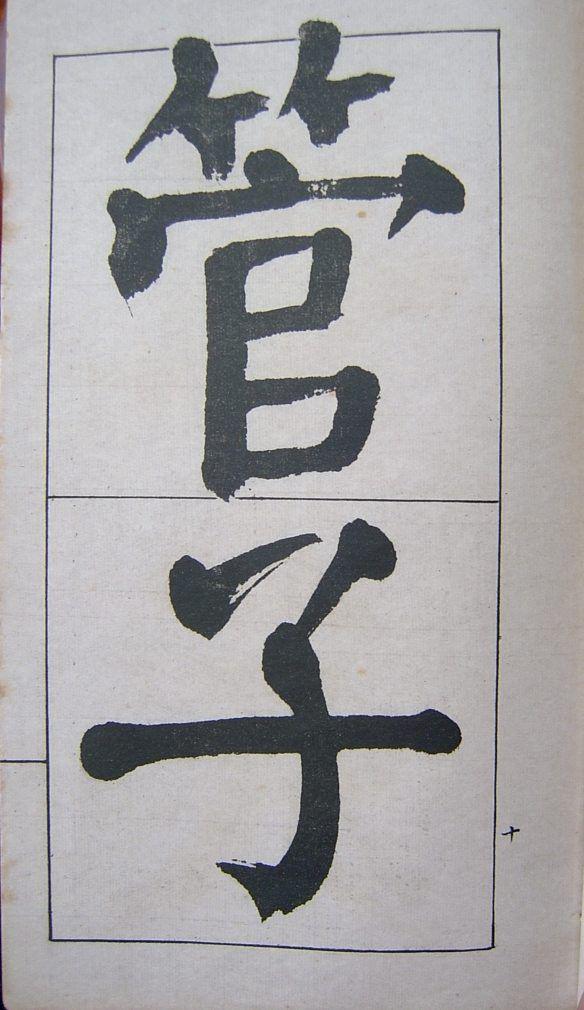 管子
十